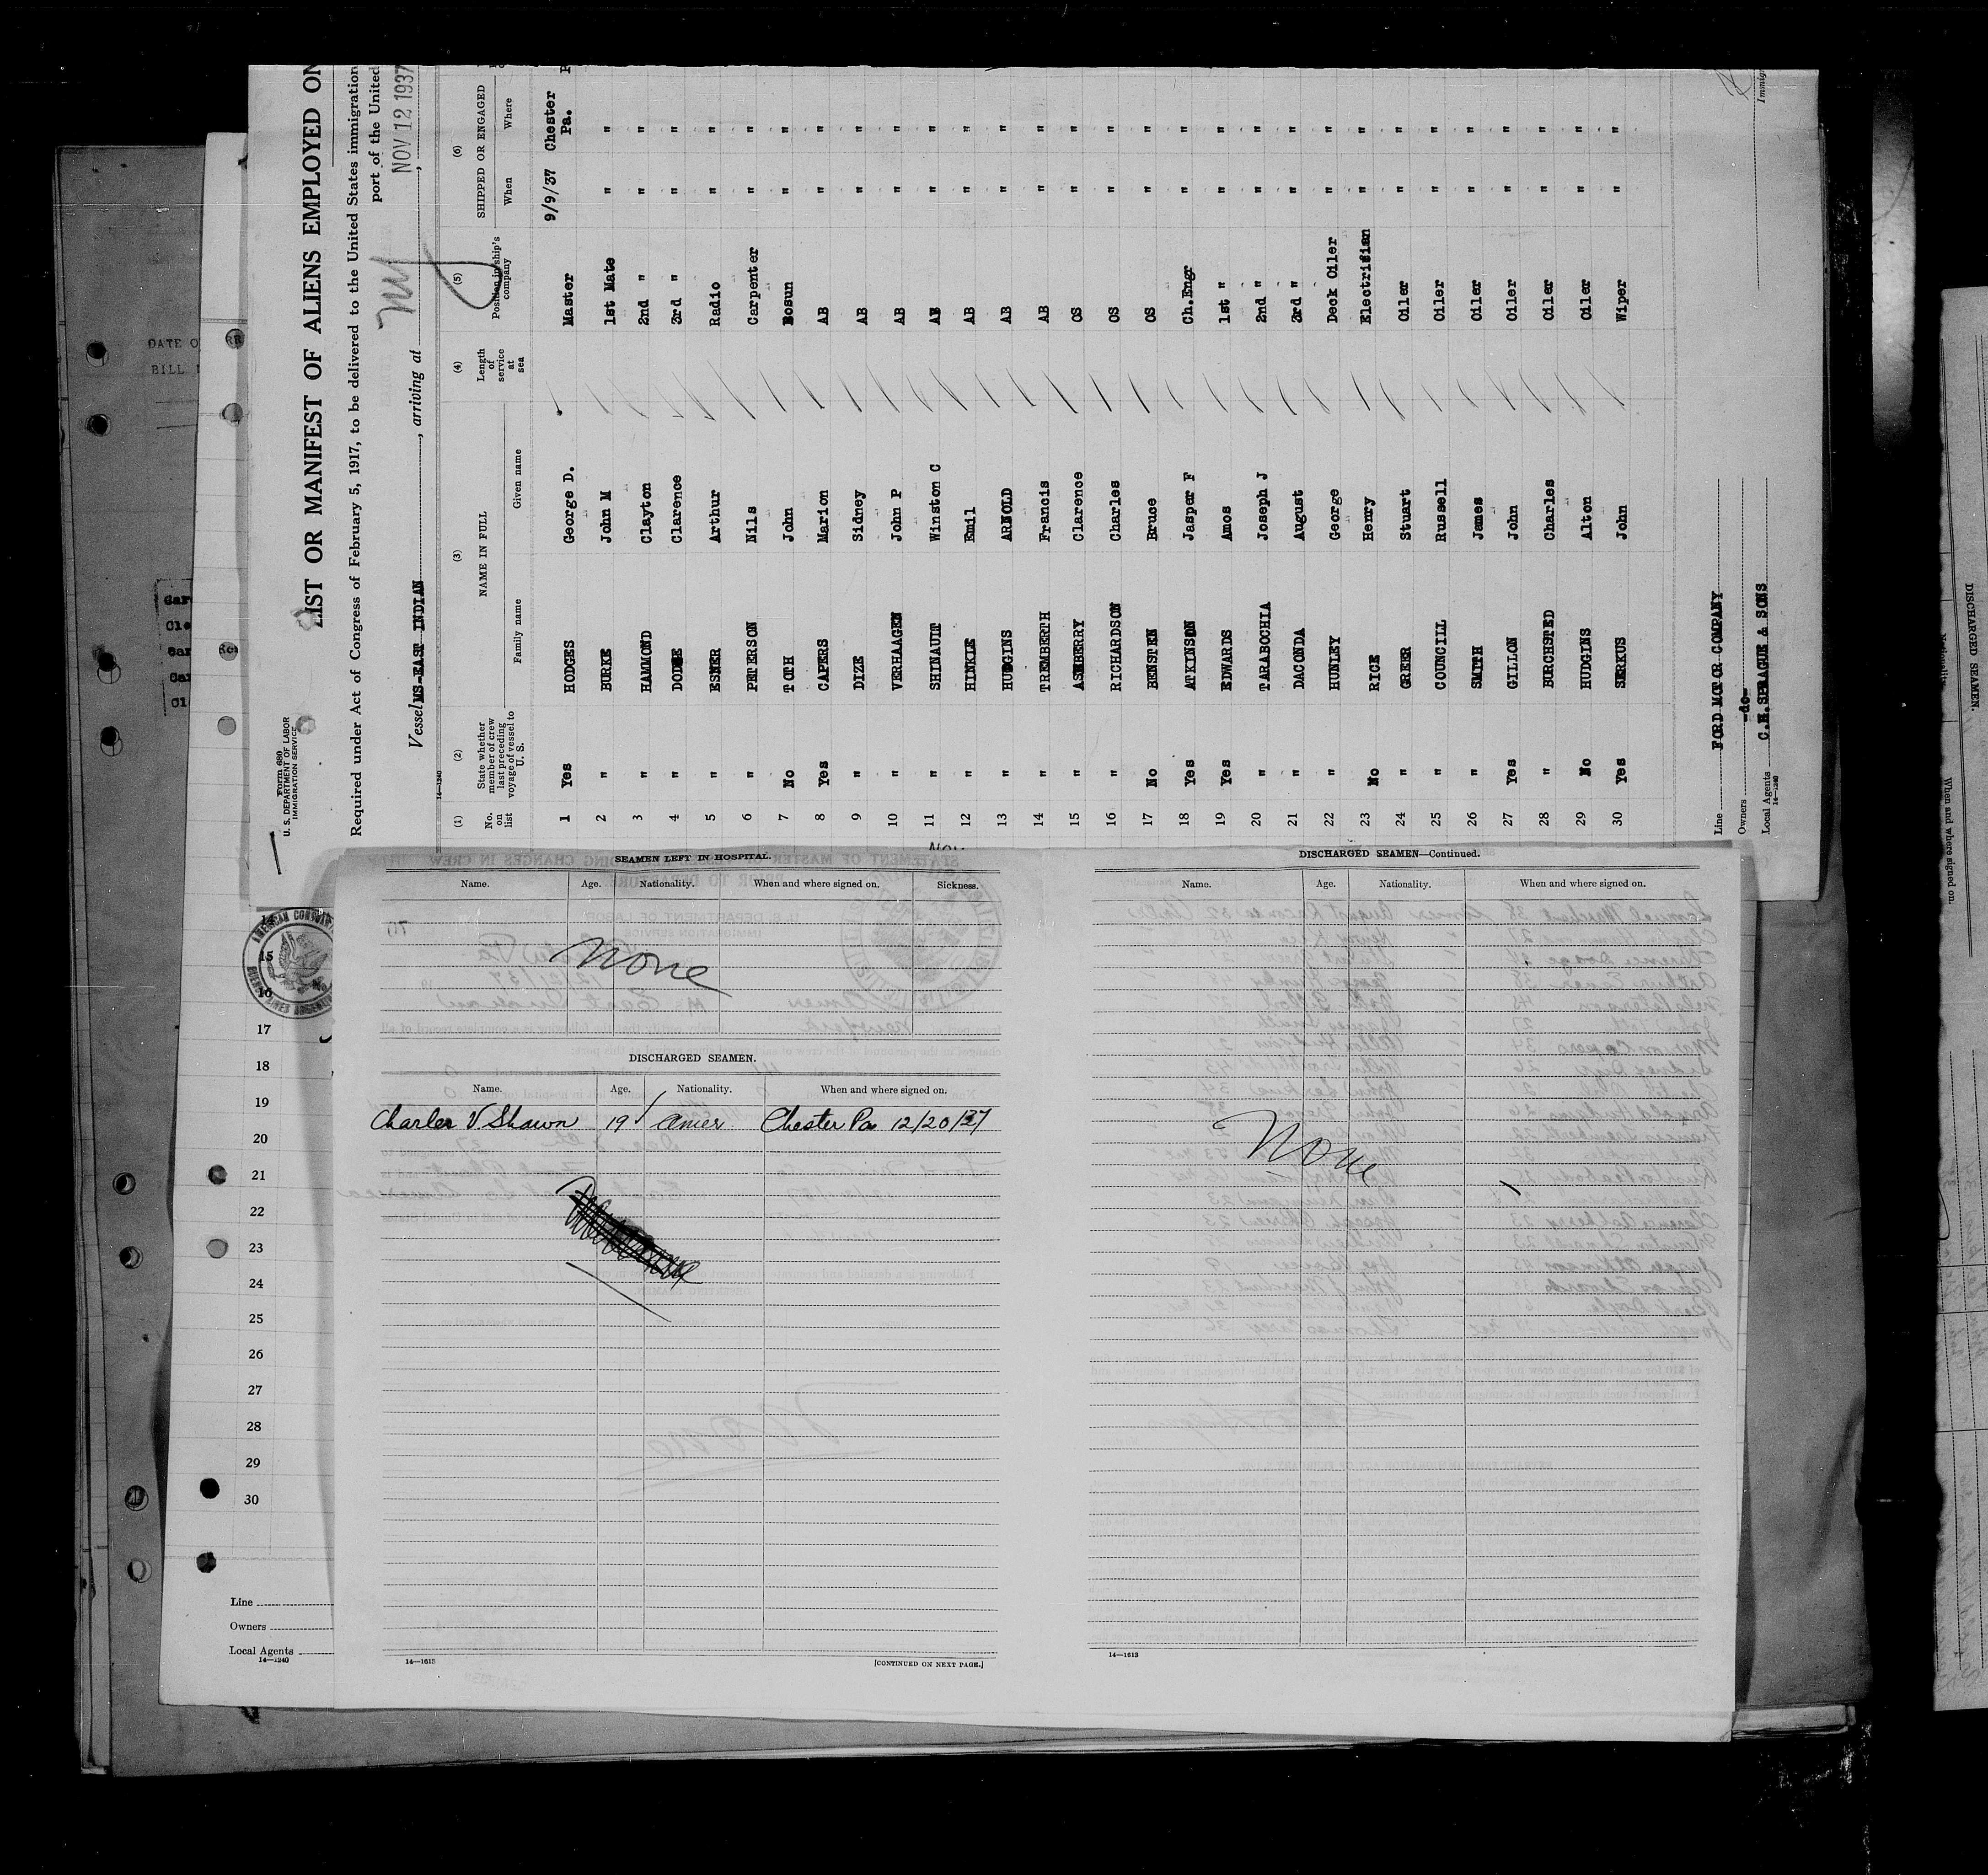 Form 680
U. S. DEPARTMENT OF LABOR
IMMIGRATION SERVICE
LIST OR MANIFEST OF ALIENS EMPLOYED ON
Required under Act of Congress of February 5, 1917, to be delivered to the United States immigration
port of the United
Vessel MS-EAST INDIAN, arriving at NY, NOV 12 1937
14-1240
(1) (2) (3) (4) (5) (6)
No. on list State whether member of crew last preceding voyage of vessel to U. S. NAME IN FULL Length of service at sea Position in ship's company SHIPPED OR ENGAGED
Family name Given name When Where
1 Yes HODGES George D. Master 9/9/37 Chester Pa.
2 " BURKE John M 1st Mate " "
3 " HAMMOND Clayton 2nd " " "
4 " DODGE Clarence 3rd " " "
5 " ESNER Arthur Radio " "
6 " PETERSON Nils Carpenter " "
7 No TOTH John Bosun " "
8 Yes CAPERS Marion AB " "
9 " DIZE Sidney AB " "
10 " VERHAAGEN John P AB " "
11 " SHINAUIT Winston C AB " "
12 " HINKLE Emil AB " "
13 " HUDGINS ARNOLD AB " "
14 " TREMBERTH Francis AB " "
15 " ASBERRY Clarence OS " "
16 " RICHARDSON Charles OS " "
17 No BENSTEN Bruce OS " "
18 Yes ATKINSON Jasper F Ch.Engr " "
19 Yes EDWARDS Amos 1st " " "
20 " TARABOCHIA Joseph J 2nd " " "
21 " DACONDA August 3rd " " "
22 " HUNLEY George Deck Oiler " "
23 No RICE Henry Electrician " "
24 " GREER Stuart Oiler " "
25 " COUNCILL Russell Oiler " "
26 " SMITH James Oiler " "
27 Yes GILLON John Oiler " "
28 " BURCHSTED Charles Oiler " "
29 No HUDGINS Alton Oiler " "
30 Yes SERKUS John Wiper " "
Line FORD MOTOR COMPANY
Owners -do-
Local Agents C.H.SPRAGUE & SONS
14-1240
SEAMEN LEFT IN HOSPITAL.
Name. Age. Nationality. When and where signed on. Sickness.
None
DISCHARGED SEAMEN.
Name. Age. Nationality. When and where signed on.
Charles V Shawn 19 Amer. Chester Pa 12/20/37
14-1613
[CONTINUED ON NEXT PAGE.]
DISCHARGED SEAMEN—Continued.
Name. Age. Nationality. When and where signed on.
None
14-1613
DATE O
BILL
AMERICAN CONSULATE
BUENOS AIRES ARGENTINA
14
15
16
17
18
19
20
21
22
23
24
25
26
27
28
29
30
Line
Owners
Local Agents
14-1240
DISCHARGED SEAMEN.
Nationality. When and where signed on.